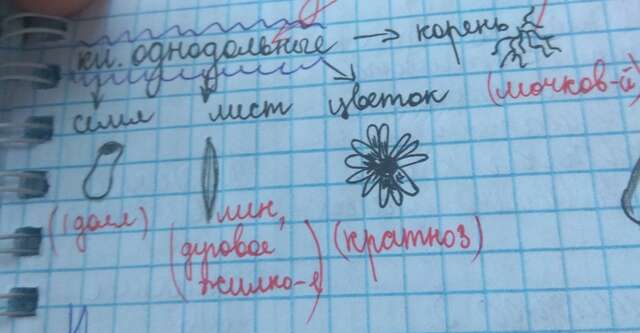 кл. однодольные → корень
семя лист цветок (мочков-й)
(1 дол) лин, (кратн3)
(дуговое
жилко-е)